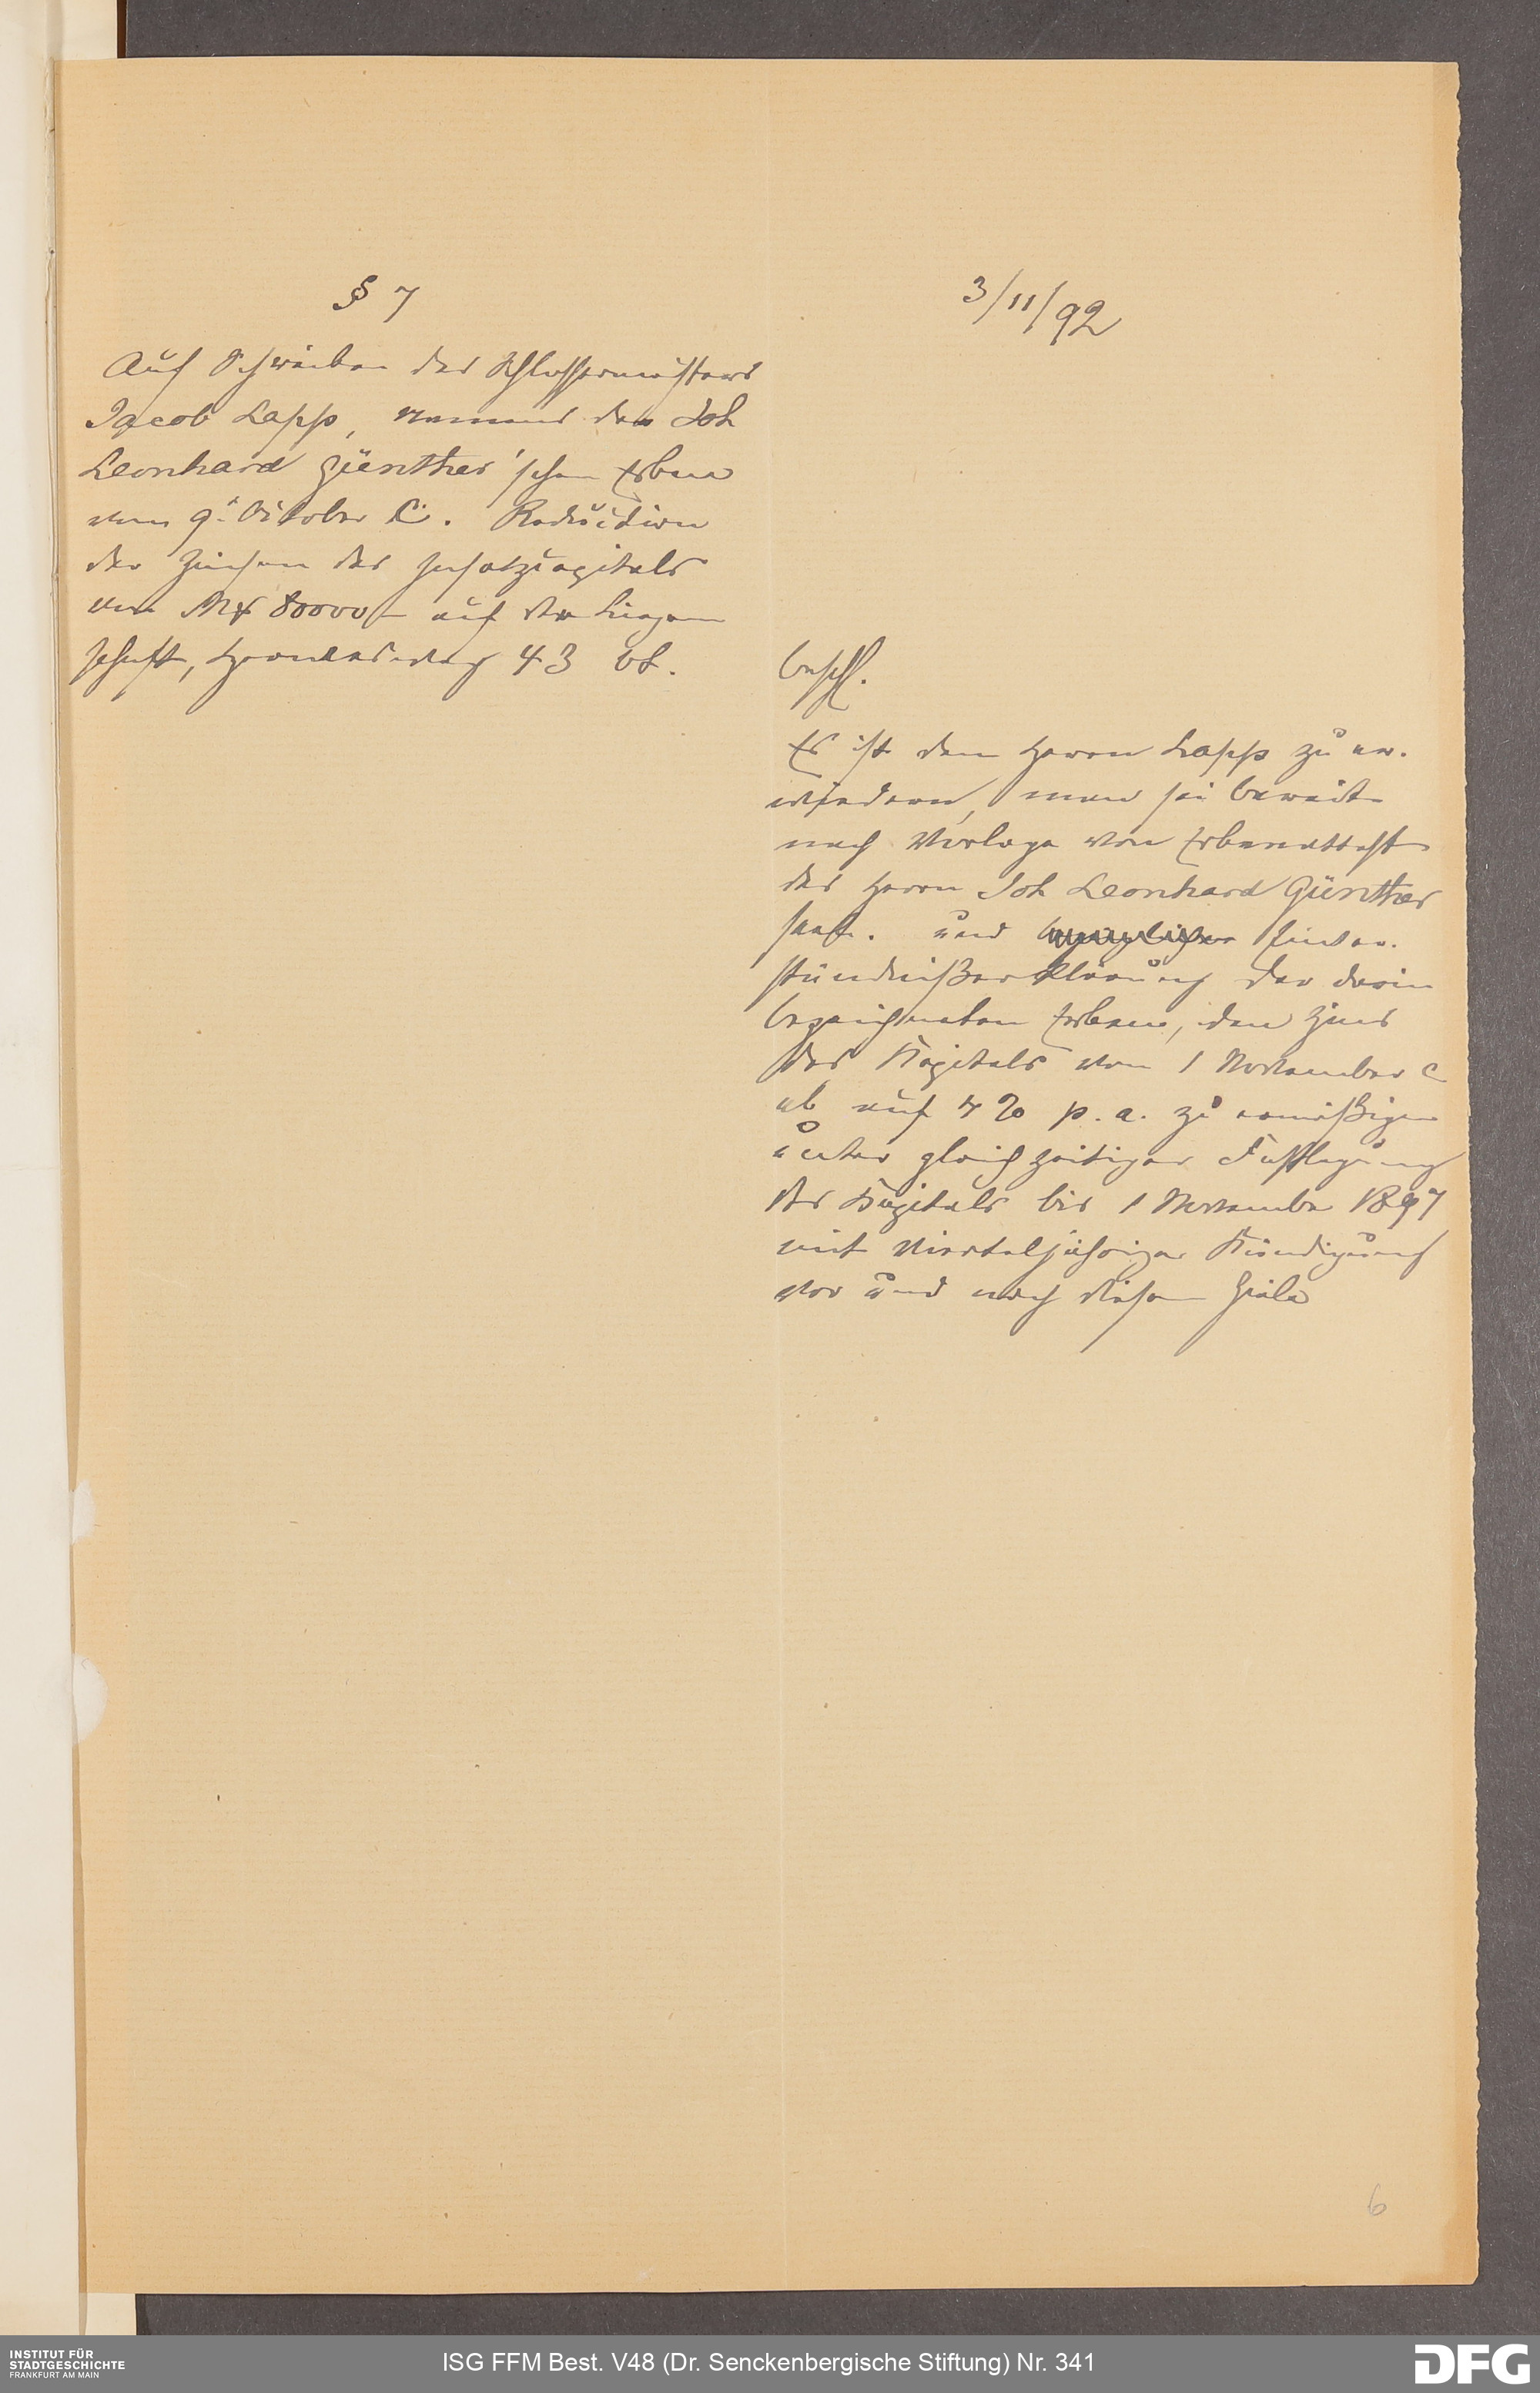 § 7
Auf Schreiben des Schlossermeisters
Jacob Lapp, namens der Joh
Leonhard Günther'schen Erben
vom 9. October c. Reduction
der Zinsen des Insatzcapitals
von Mk 80000,– auf der Liegen
schaft, 43 btr.
3/11/92
beschl.
Es ist dem Herrn Lapp zu er-
wiedern, man sei bereit
nach Vorlage von Erbenattest
des Herrn Joh Leonhard Günther
sen. und Einver-
ständnißerklärung der darin
bezeichneten Erben, den Zins
des Kapitals vom 1 November c
ab auf 4 % p. a. zu ermäßigen
unter gleichzeitiger Festlegung
des Kapitals bis 1 November 1897
mit vierteljähriger Kündigung
vor und nach diesem Ziele
6
INSTITUT FÜR
STADTGESCHICHTE
FRANKFURT AM MAIN
ISG FFM Best. V48 (Dr. Senckenbergische Stiftung) Nr. 341
DFG